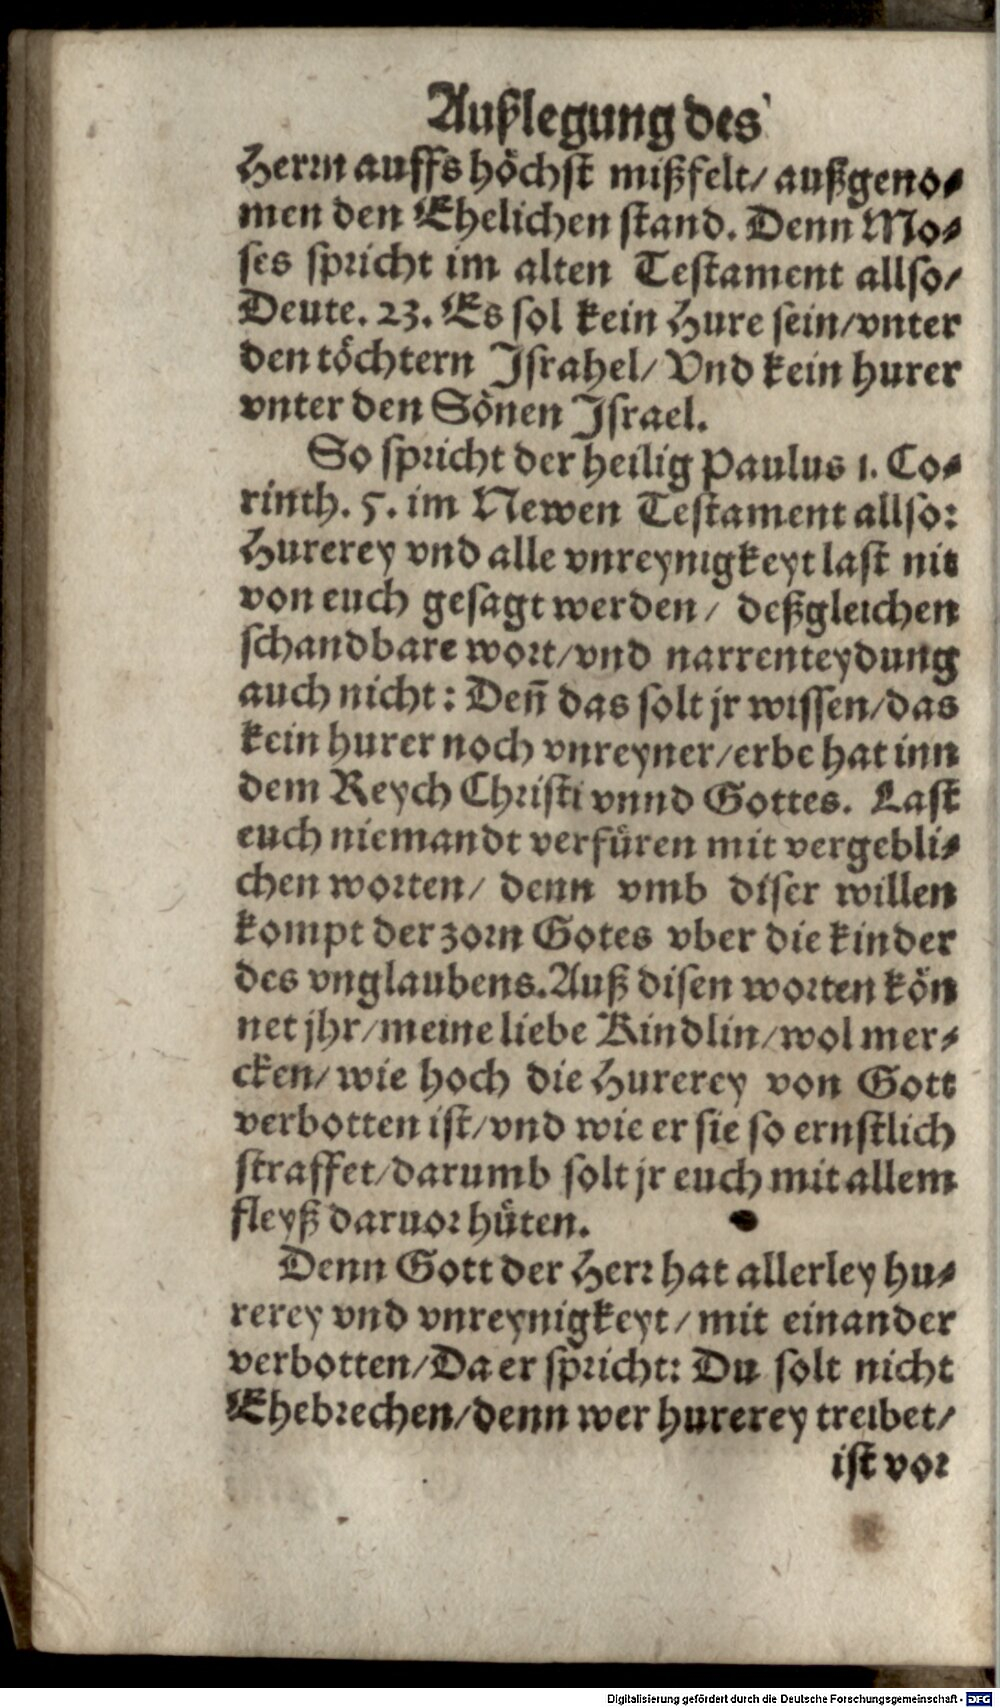 Außlegung des
Herrn auffs höchst mißfelt/ außgeno⸗
men den Ehelichen stand. Denn Mo⸗
ses spricht im alten Testament allso/
Deute. 23. Es sol kein Hure sein/vnter
den töchtern Israhel/ Vnd kein hurer
vnter den Sönen Israel.
So spricht der heilig Paulus 1. Co⸗
rinth. 5. im Newen Testament allso:
Hurerey vnd alle vnreynigkeyt last nit
von euch gesagt werden/ deßgleichen
schandbare wort/vnd narrenteydung
auch nicht: Deñ das solt jr wissen/das
kein hurer noch vnreyner/erbe hat inn
dem Reych Christi vnnd Gottes. Last
euch niemandt verfüren mit vergebli⸗
chen worten/ denn vmb diser willen
kompt der zorn Gotes vber die kinder
des vnglaubens. Auß disen worten kön
net jhr/meine liebe Kindlin/wol mer⸗
cken/ wie hoch die Hurerey von Gott
verbotten ist/vnd wie er sie so ernstlich
straffet/darumb solt jr euch mit allem
fleyß daruor hüten.
Denn Gott der Herr hat allerley hu⸗
rerey vnd vnreynigkeyt/ mit einander
verbotten/Da er spricht: Du solt nicht
Ehebrechen/denn wer hurerey treibet/
ist vor
Digitalisierung gefördert durch die Deutsche Forschungsgemeinschaft - DFG